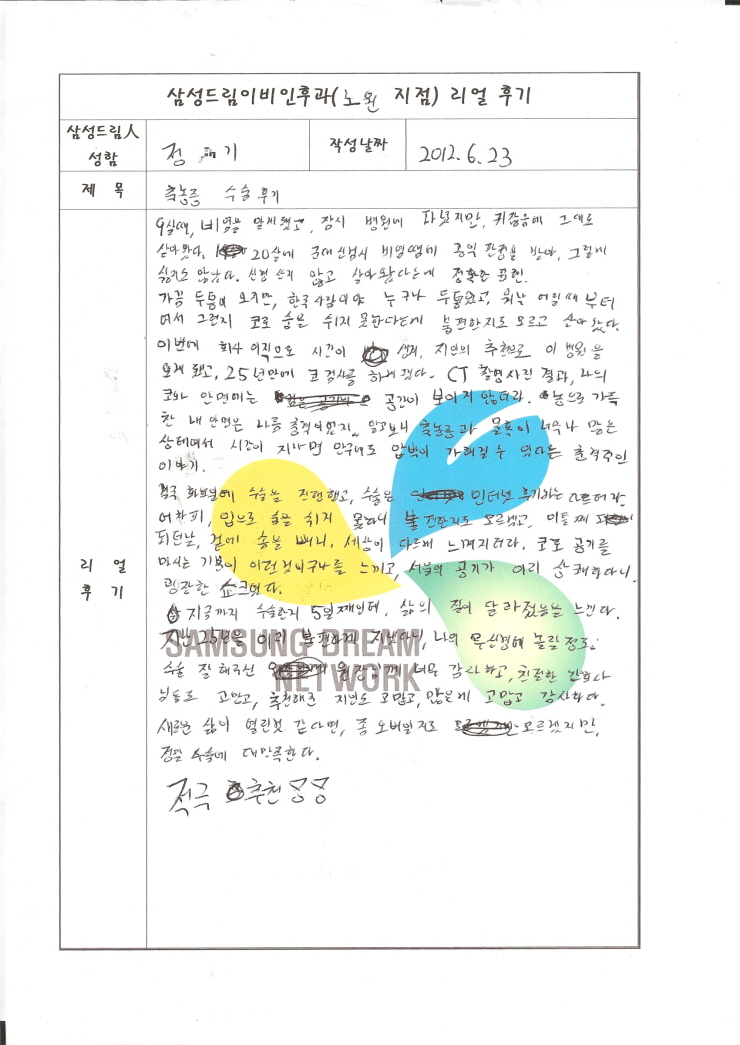 삼성드림이비인후과(노원 지점) 리얼 후기
삼성드림人
성함
정 기
작성날짜
2012. 6. 23
제 목
축농증 수술 후기
9살때, 비염을 알게됐고, 잠시 병원에 다녔지만, 귀찮음에 그대로
살아왔다. 20살에 군대신검시 비염땜에 공익 판정을 받아, 그렇게
싫지도 않았다. 신경 쓰지 않고 살아왔다는게 정확한 표현.
가끔 두통이 오지만, 한국사람이야 누구나 두통있고, 워낙 어릴때 부터
여서 그런지 코로 숨을 쉬지 못한다는데 불편한지도 모르고 살아 왔다.
이번에 회사 이직으로 시간이 생겨, 지인의 추천으로 이 병원을
오게 됐고, 25년만에 코 검사를 하게 됐다. CT 촬영사진 결과, 나의
코와 안면에는 공간이 보이지 않더라. 농으로 가득
찬 내 안면은 나름 충격이었지.. 알고보니 축농증과 물혹이 너무나 많은
상태여서 시간이 지나면 안구에도 압박이 가해질 수 있다는 충격적인
이야기.
결국 화요일에 수술을 진행했고, 수술은 인터넷 후기와는
어차피, 입으로 숨을 쉬지 못하니 불편한지도 모르겠고, 이틀째
되던날, 겉에 솜을 빼니, 세상이 다르게 느껴지더라. 코로 공기를
마시는 기분이 이런것이구나를 느끼고, 서울의 공기가 이리 상쾌하다니,
굉장한 쇼크였다.
지금까지 수술한지 5일째인데, 삶의 질이 달라졌음을 느낀다.
지난 25년을 이리 불편하게 지냈다니, 나의 무신경에 놀랄정도.
수술 잘 해주신 원장님께 너무 감사하고, 친절한 간호사
님들도 고맙고, 추천해준 지인도 고맙고, 많은게 고맙고 감사하다.
새로운 삶이 열린것 같다면, 좀 오버일지도 모르겠지만,
정말 수술에 대만족한다.
적극 추천
리 얼
후 기
SAMSUNG DREAM
NETWORK